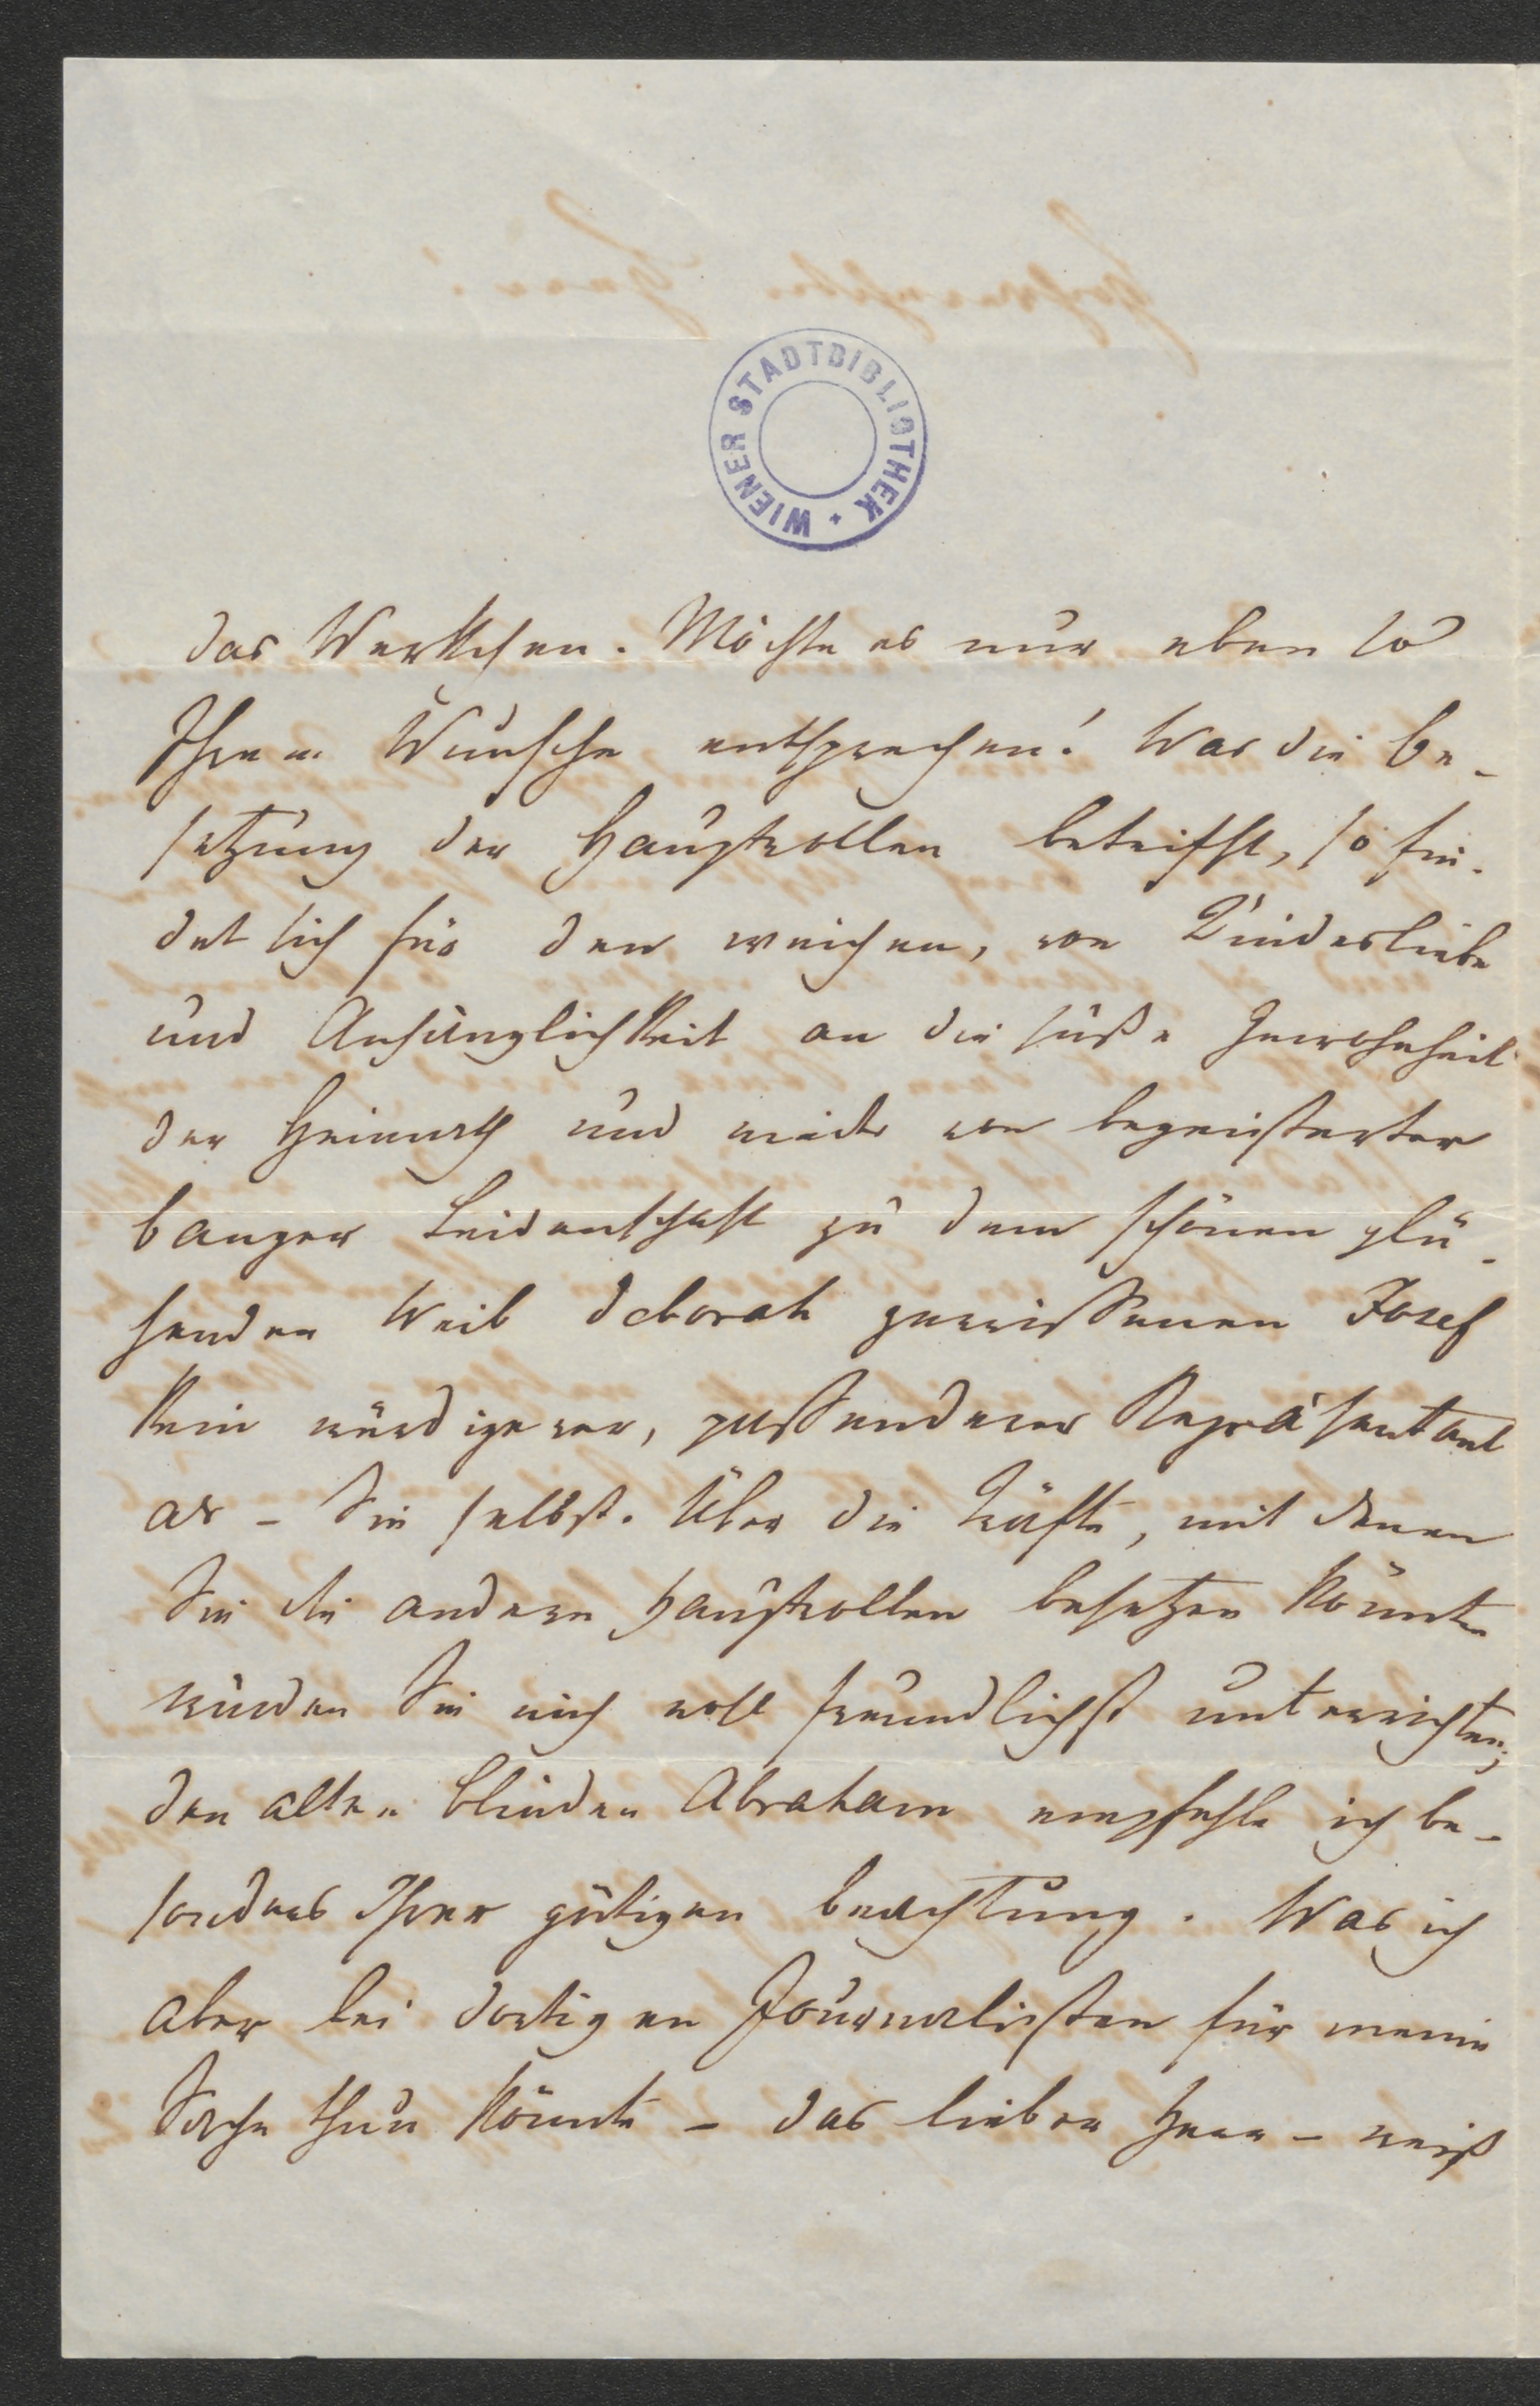 WIENER STADTBIBLIOTHEK +
das Werkchen. Möchte es nur eben so
Ihrem Wunsche entsprechen! Was die Be-
setzung der Hauptrollen betrifft, so fin-
det sich für den weichen, von Kindesliebe
und Anhänglichkeit an die süße Gewohnheit
der Heimath und wieder von begeisterter
banger Leidenschaft zu dem schönen glü-
henden Weib Deborah zerrissenen Josef
kein würdigerer, passenderer Repräsentant
als – Sie selbst. Über die Kräfte, mit denen
Sie die andern Hauptrollen besetzen könnten
würden Sie mich wohl freundlichst unterrichten;
den alten blinden Abraham empfehle ich be-
sonders Ihrer gütigen Beachtung. Was ich
aber bei dortigen Journalisten für meine
Sache thun könnte – das lieber Herr – weiß